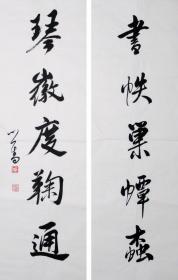 書帙巢蟫蠹
琴徽度鞠通
心畬